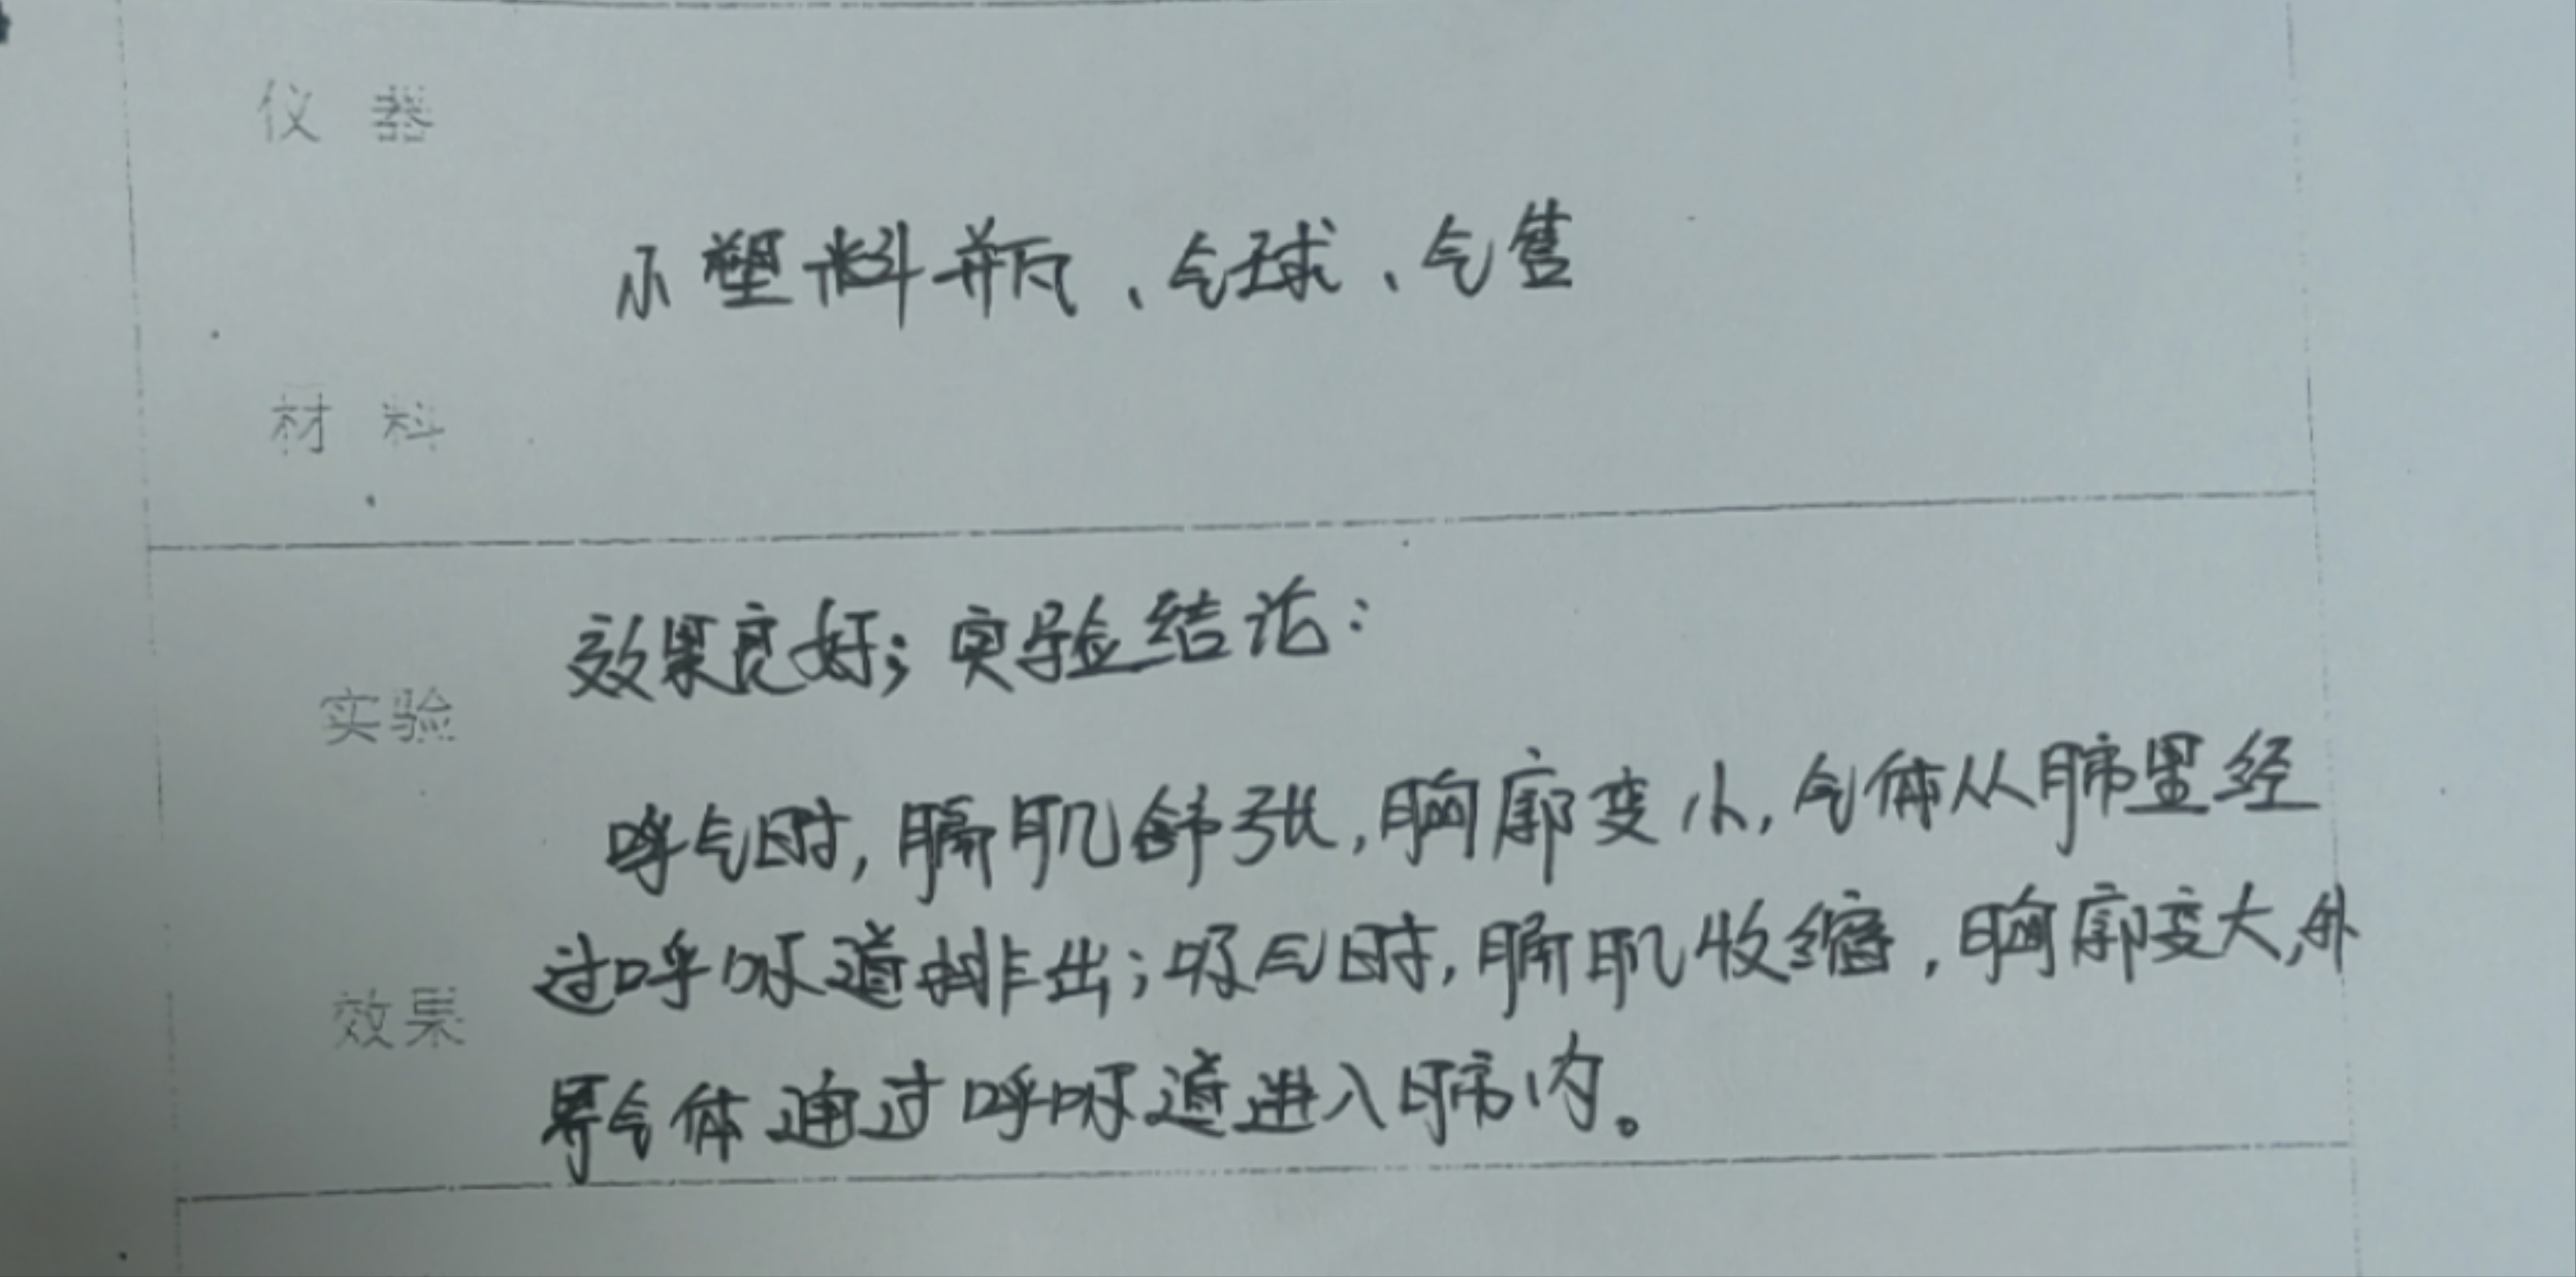 仪 器
小塑料瓶、气球、气售
材 料
效果良好;实验结论:
实验
呼气时,膈肌舒张,胸廓变小,气体从肺里经
过呼吸道排出;吸气时,膈肌收缩,胸廓变大,外
效果
界气体通过呼吸道进入肺内。